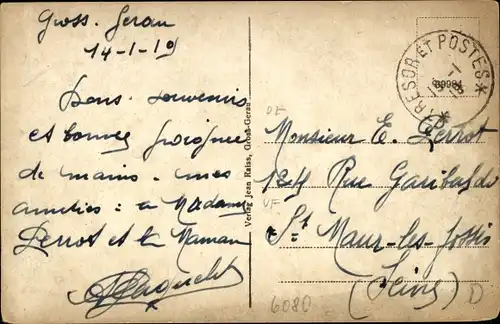 Gross. Gerau
14-1-19
Bons souvenirs
et bonnes poignées
de mains. mes
amitiés : à Madame
Perrot et la Maman
Verlag Jean Kaiss, Groß-Gerau
TRESOR ET POSTES
DF
Monsieur E. Perrot
124 Rue Garibaldi
VF
St Maur-les-fossés
(Seine)
6080
D